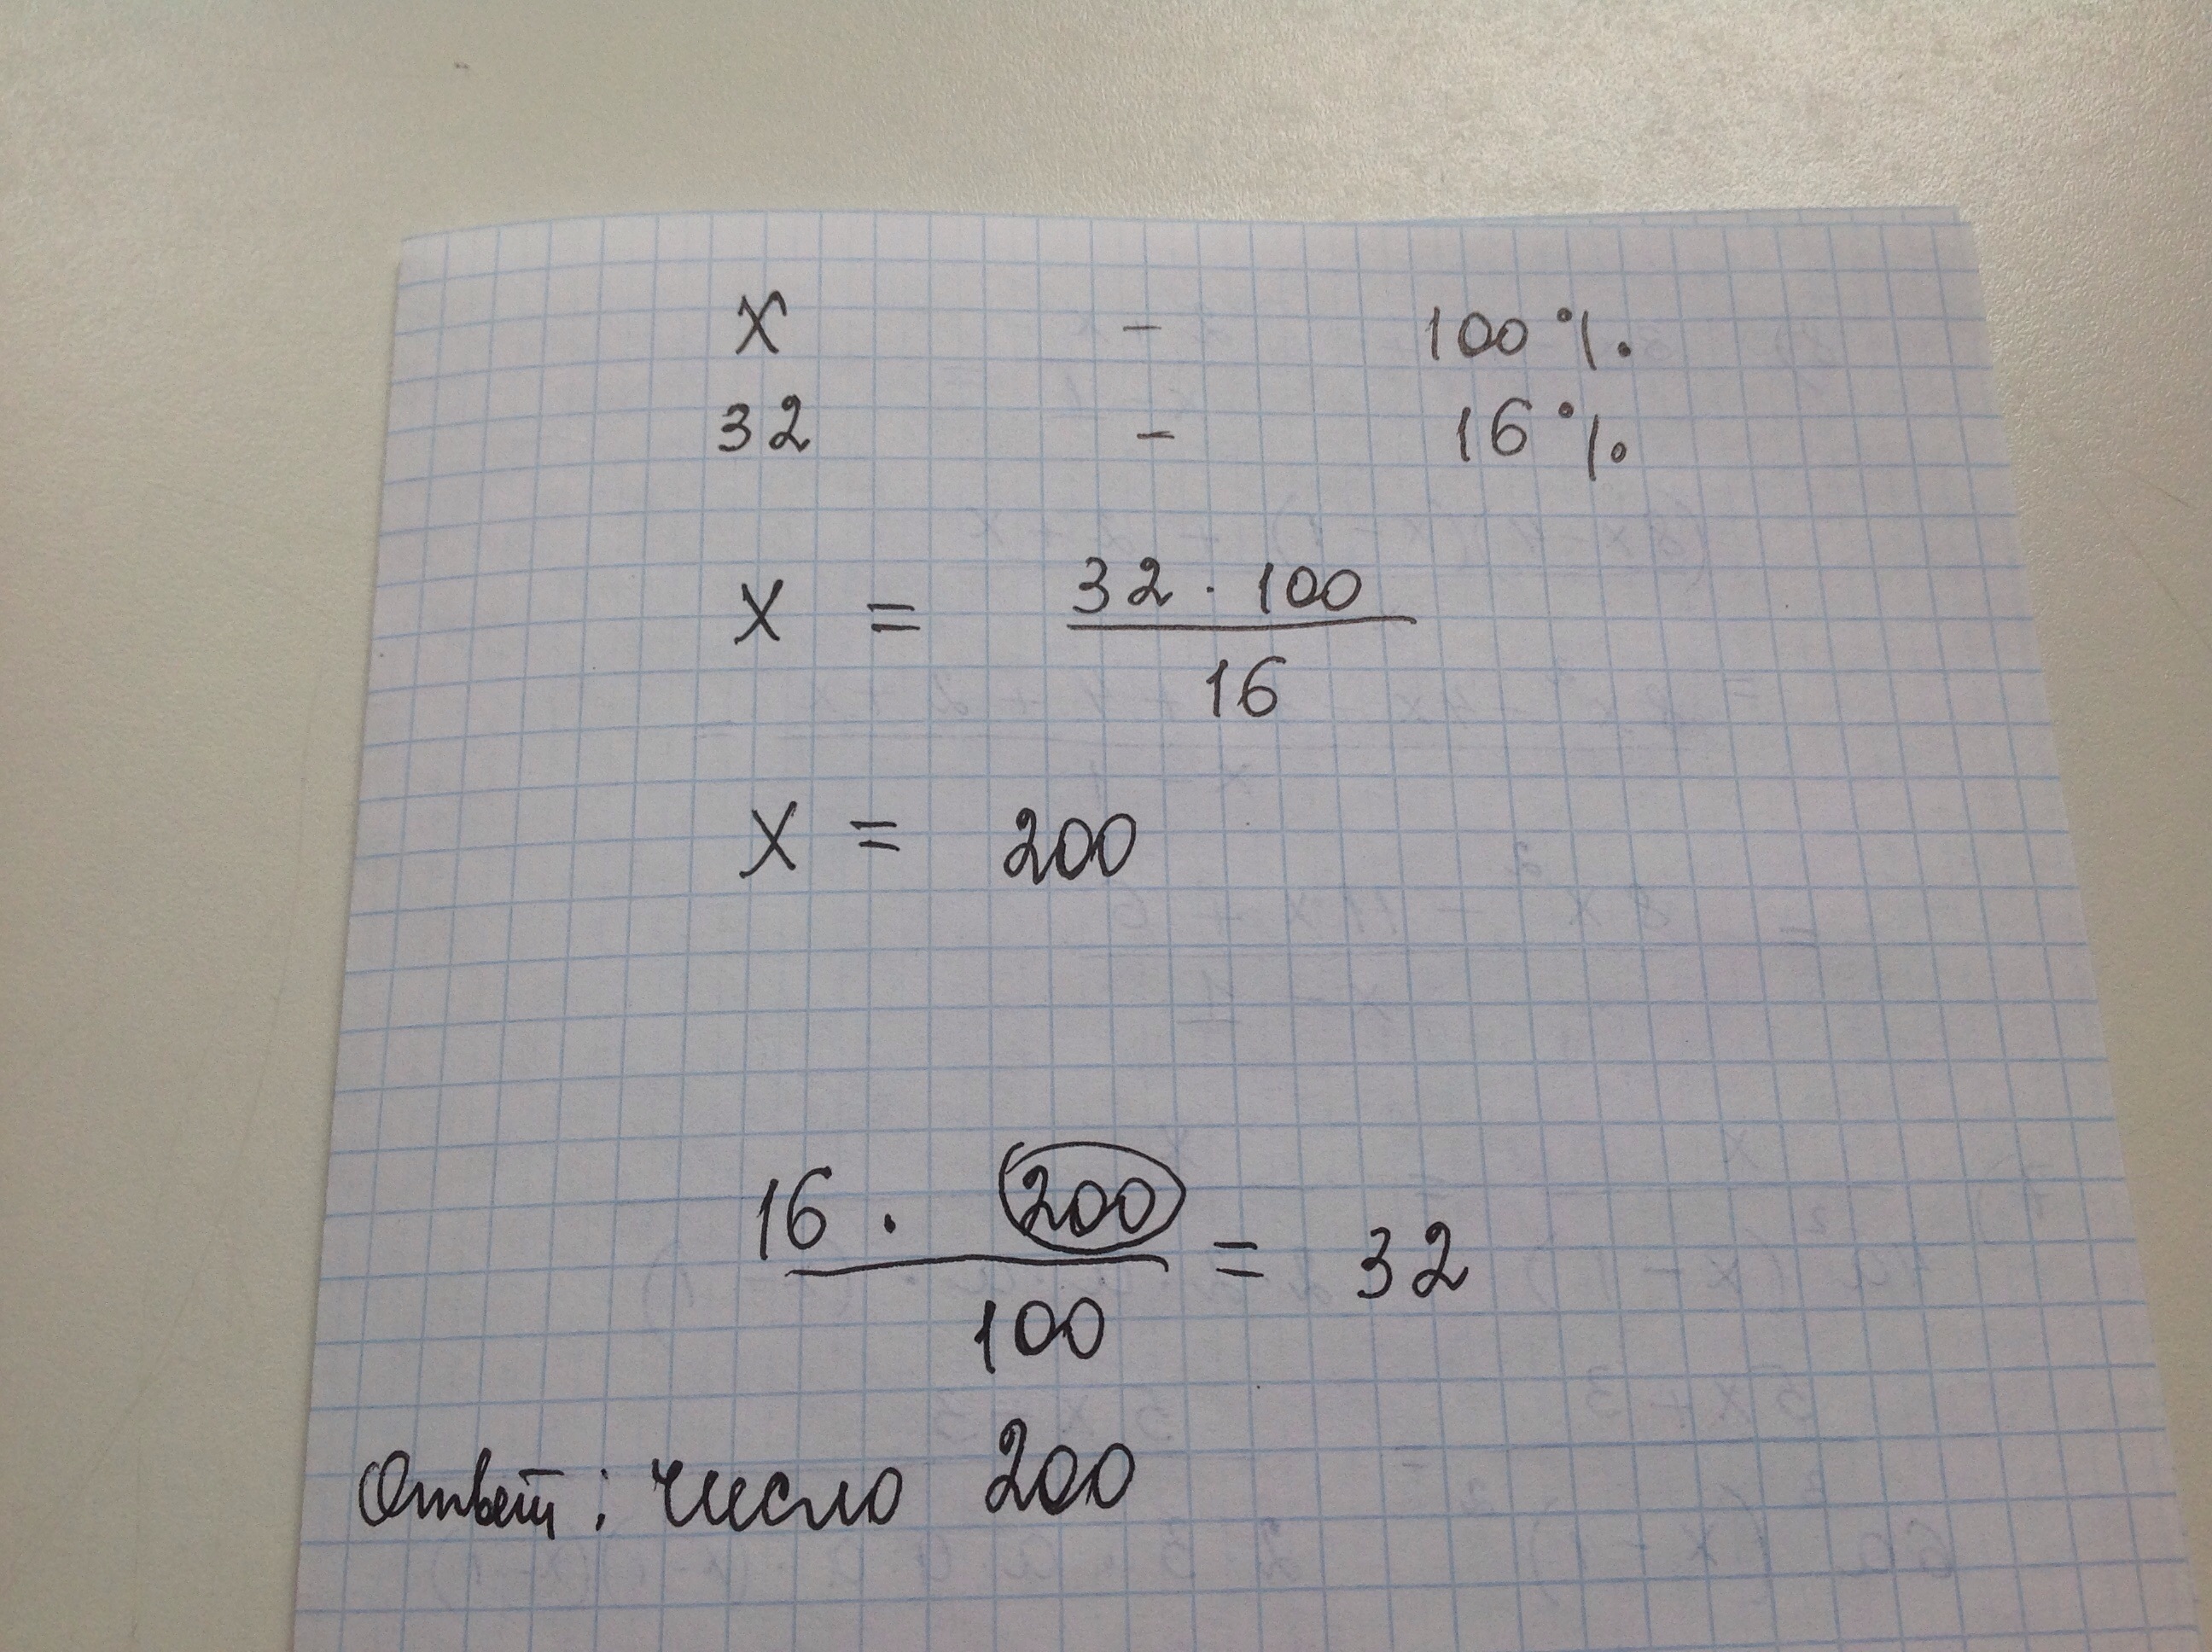 x - 100%
32 - 16%
x = 32 · 100 / 16
x = 200
16 · 200 / 100 = 32
Ответ: число 200